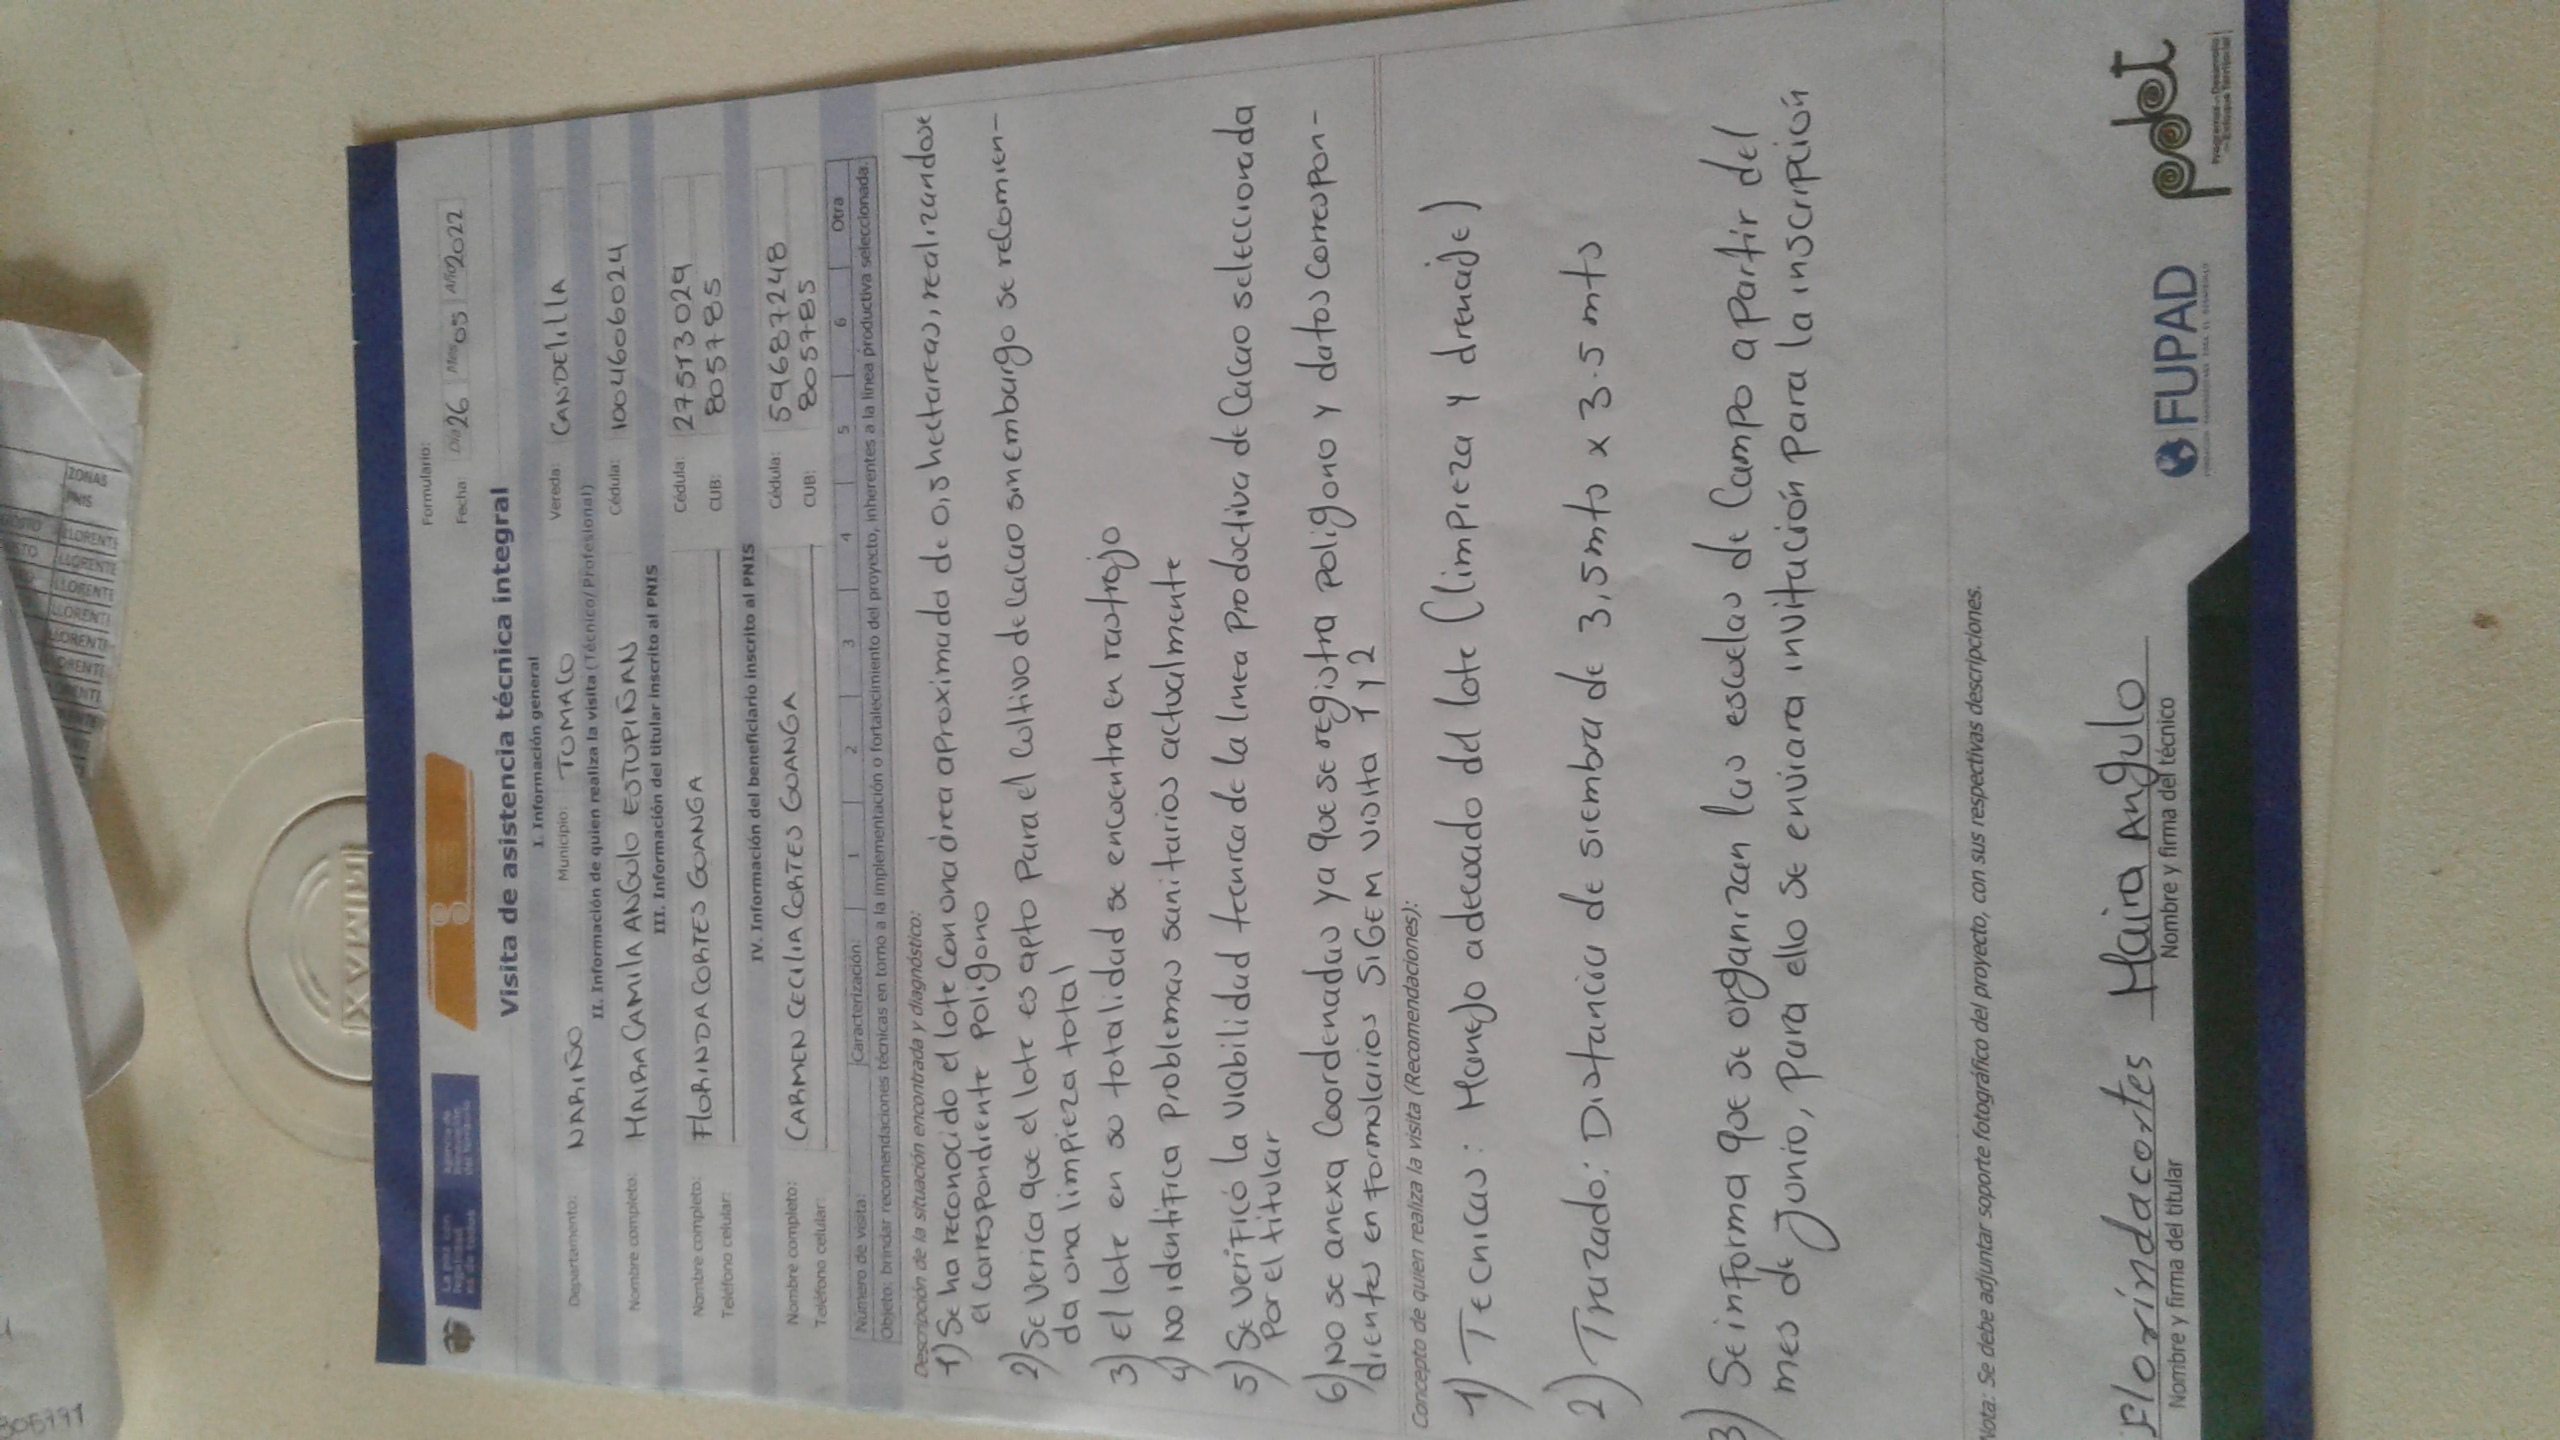 Formulario:
Fecha: Día 26 Mes 05 Año 2022
Visita de asistencia técnica integral
I. Información general
Departamento: NARIÑO Municipio: TUMACO Vereda: CANDELILLA
II. Información de quien realiza la visita (Técnico/Profesional)
Nombre completo: MAIRA CAMILA ANGULO ESTUPIÑAN Cédula: 1004606024
III. Información del titular inscrito al PNIS
Nombre completo: FLORINDA CORTES GUANGA Cédula: 27513029
Teléfono celular: CUB: 805785
IV. Información del beneficiario inscrito al PNIS
Nombre completo: CARMEN CECILIA CORTES GUANGA Cédula: 59687248
Teléfono celular: CUB: 805785
Número de visita: Caracterización: 1 2 3 4 5 6 Otra
Objeto: brindar recomendaciones técnicas en torno a la implementación o fortalecimiento del proyecto, inherentes a la línea productiva seleccionada.
Descripción de la situación encontrada y diagnóstico:
1) Se ha reconocido el lote con una área aproximada de 0,5 hectareas, realizandose
el correspondiente poligono
2) Se verica que el lote es apto para el cultivo de cacao sin embargo se recomien-
da una limpieza total
3) el lote en su totalidad se encuentra en rastrojo
4) No identifica problemas sanitarios actualmente
5) Se verificó la viabilidad tecnica de la linea productiva de cacao seleccionada
por el titular
6) No se anexa coordenadas ya que se registra poligono y datos correspon-
dientes en formularios SIGEM visita 1 y 2
Concepto de quien realiza la visita (Recomendaciones):
1) Tecnicas: Manejo adecuado del lote (limpieza y drenaje)
2) Trazado: Distancia de siembra de 3,5 mts x 3.5 mts
3) Se informa que se organizan las escuelas de campo a partir del
mes de junio, para ello se enviara invitación para la inscripción
Nota: Se debe adjuntar soporte fotográfico del proyecto, con sus respectivas descripciones.
Florindacortes Maira Angulo
Nombre y firma del titular Nombre y firma del técnico
FUPAD
pdet
ZONAS
PNIS
LLORENTE
LLORENTE
LLORENTE
LLORENTE